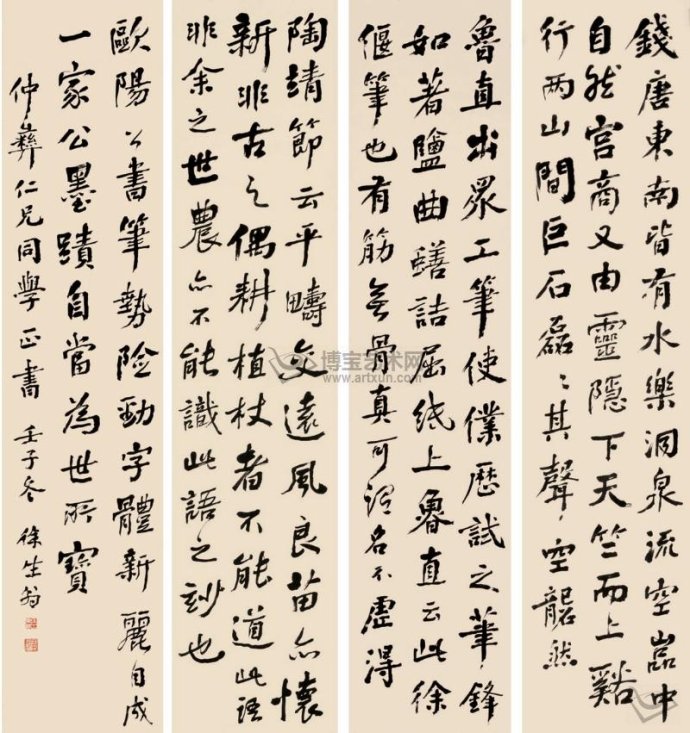 錢唐東南皆有水樂洞泉流空嵓中
自然宮商又由靈隱下天竺而上谿
行兩山間巨石磊〻其聲空礱然
魯直出眾工筆使僕歷試之筆鋒
如著鹽曲蟮詰屈紙上魯直云此徐
偃筆也有筋无骨真可謂名不虛得
陶靖節云平疇交遠風良苗亦懷
新非古之偶耕植杖者不能道此語
非余之世農亦不能識此語之妙也
歐陽公書筆勢險勁字體新麗自成
一家公墨蹟自當為世所寶
仲彝仁兄同學正書 壬子冬 徐生翁
博宝艺术网
www.artxun.com